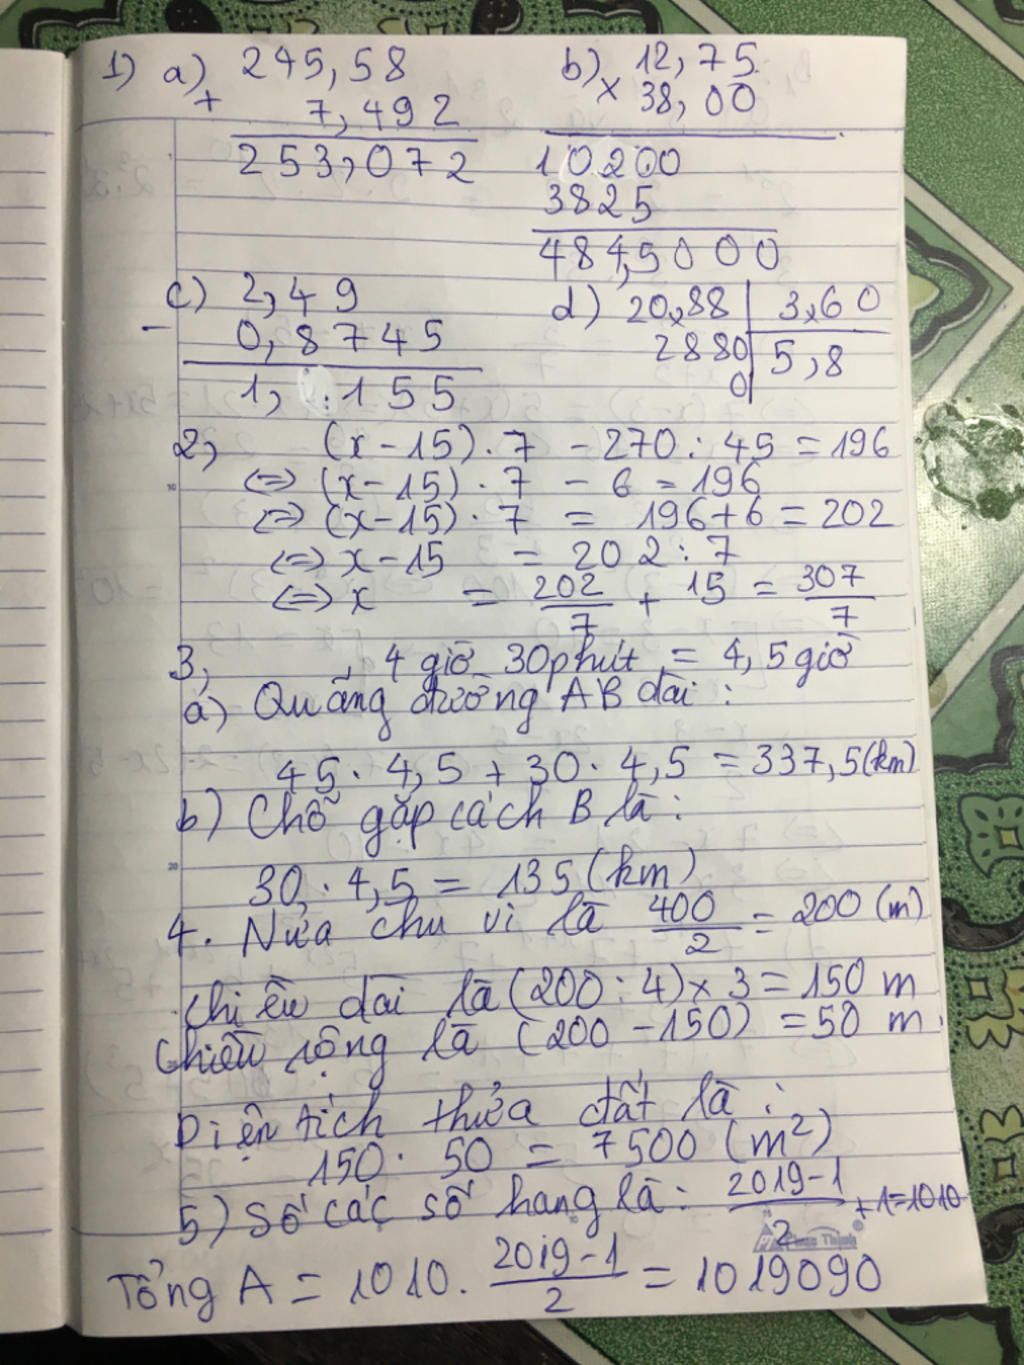 1) a) 245,58 b) 12,75
+ 7,492 × 38,00
253,072 10200
3825
484,5000
c) 2,49 d) 20,88 3,60
- 0,8745 2880 5,8
1, 155 0
2, (x - 15) . 7 - 270 : 45 = 196
<=> (x - 15) . 7 - 6 = 196
<=> (x - 15) . 7 = 196 + 6 = 202
<=> x - 15 = 202 : 7
<=> x = 202/7 + 15 = 307/7
3, 4 giờ 30 phút = 4,5 giờ
a) Quãng đường AB dài :
45 . 4,5 + 30 . 4,5 = 337,5 (km)
b) Chỗ gặp cách B là :
30 . 4,5 = 135 (km)
4. Nửa chu vi là 400/2 = 200 (m)
Chiều dài là (200 : 4) × 3 = 150 m
Chiều rộng là (200 - 150) = 50 m
Diện tích thửa đất là :
150 . 50 = 7500 (m²)
5) Số các số hạng là : 2019-1/2 + 1 = 1010
Tổng A = 1010 . 2019-1/2 = 1019090